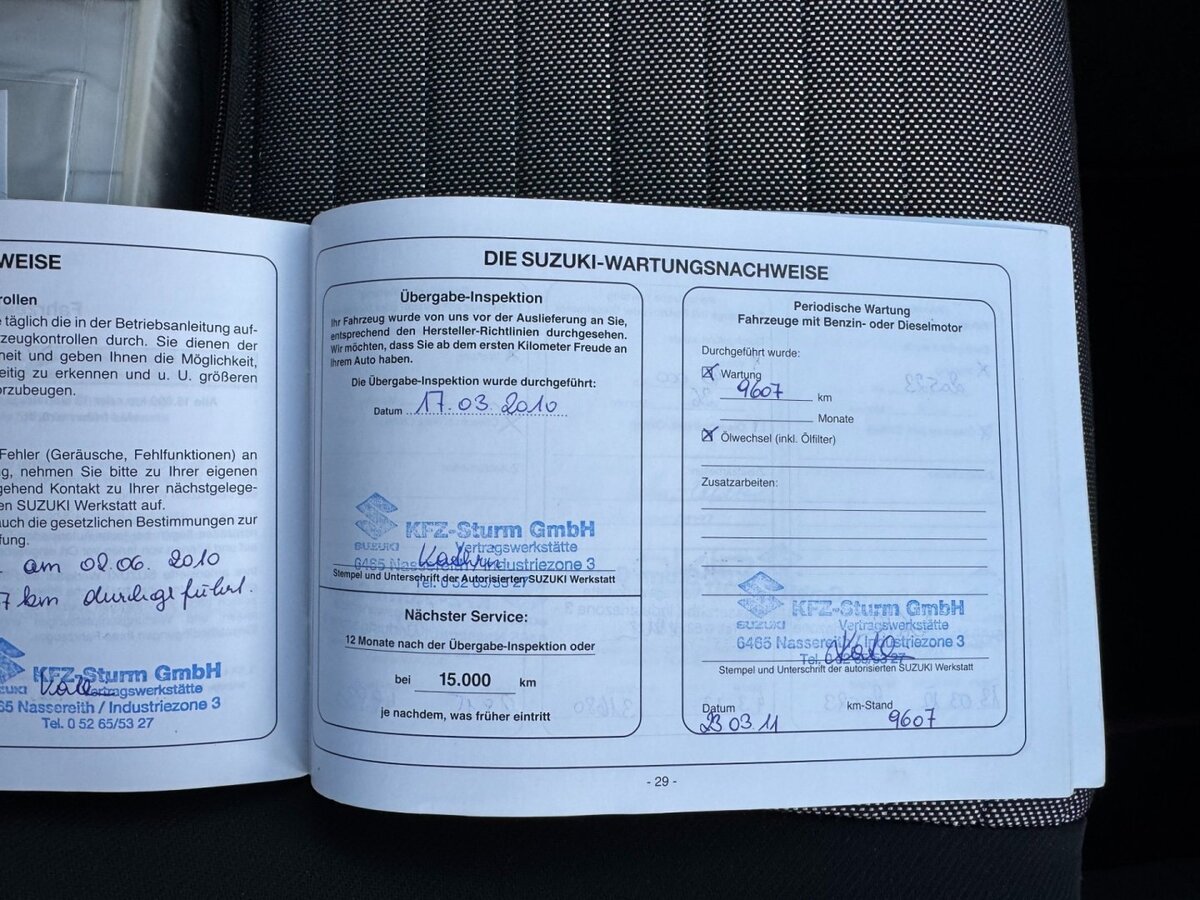 WEISE
rollen
e täglich die in der Betriebsanleitung auf-
rzeugkontrollen durch. Sie dienen der
heit und geben Ihnen die Möglichkeit,
eitig zu erkennen und u. U. größeren
orzubeugen.
Fehler (Geräusche, Fehlfunktionen) an
g, nehmen Sie bitte zu Ihrer eigenen
gehend Kontakt zu Ihrer nächstgelege-
en SUZUKI Werkstatt auf.
auch die gesetzlichen Bestimmungen zur
fung.
am 02.06. 2010
7 km durchgeführt.
KFZ-Sturm GmbH
UZUKI Vertragswerkstätte
65 Nassereith / Industriezone 3
Tel. 0 52 65/53 27
DIE SUZUKI-WARTUNGSNACHWEISE
Übergabe-Inspektion
Ihr Fahrzeug wurde von uns vor der Auslieferung an Sie,
entsprechend den Hersteller-Richtlinien durchgesehen.
Wir möchten, dass Sie ab dem ersten Kilometer Freude an
Ihrem Auto haben.
Die Übergabe-Inspektion wurde durchgeführt:
Datum 17.03.2010
KFZ-Sturm GmbH
SUZUKI Vertragswerkstätte
6465 Nassereith / Industriezone 3
Tel. 0 52 65/53 27
Stempel und Unterschrift der Autorisierten SUZUKI Werkstatt
Nächster Service:
12 Monate nach der Übergabe-Inspektion oder
bei 15.000 km
je nachdem, was früher eintritt
Periodische Wartung
Fahrzeuge mit Benzin- oder Dieselmotor
Durchgeführt wurde:
Wartung
9607 km
Monate
Ölwechsel (inkl. Ölfilter)
Zusatzarbeiten:
KFZ-Sturm GmbH
SUZUKI Vertragswerkstätte
6465 Nassereith / Industriezone 3
Tel. 0 52 65/53 27
Stempel und Unterschrift der autorisierten SUZUKI Werkstatt
Datum km-Stand
23 03. 11 9607
- 29 -